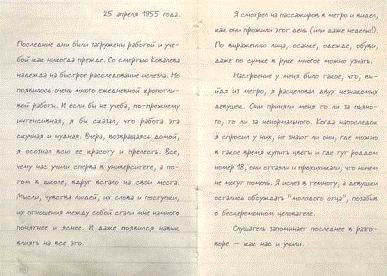 25 апреля 1955 года.
Последние дни были загружены работой и уче-
бой как никогда прежде. Со смертью Ковалева
надежда на быстрое расследование исчезла. Но
появилось очень много ежедневной кропотли-
вой работы. И если бы не учеба, по-прежнему
интенсивная, я бы сказал, что работа эта
скучная и нудная. Вчера, возвращаясь домой,
я осознал всю ее красоту и прелесть. Все,
чему нас учили сперва в университете, а по-
том в школе, вдруг встало на свои места.
Мысли, чувства людей, их слова и поступки,
их отношения между собой стали мне намного
понятнее и яснее. И даже появился навык
влиять на все это.
Я смотрел на пассажиров в метро и видел,
как они прожили этот день (или даже недели!).
По выражению лица, осанке, одежде, обуви,
даже по сумке в руке многое можно узнать.
Настроение у меня было такое, что, вы-
йдя из метро, я расцеловал двух незнакомых
девушек. Они приняли меня то ли за пьяно-
го, то ли за ненормального. Когда напоследок
я спросил у них, не знают ли они, где можно
в такое время купить цветы и где тут роддом
номер 18, они оттаяли и прохихикали, что ничем
не могут помочь. Я исчез в темноту, а девушки
остались обсуждать "молодого отца", позабыв
о бесцеремонном нахале.
Слушатель запоминает последнее в разго-
воре — как нас и учили.